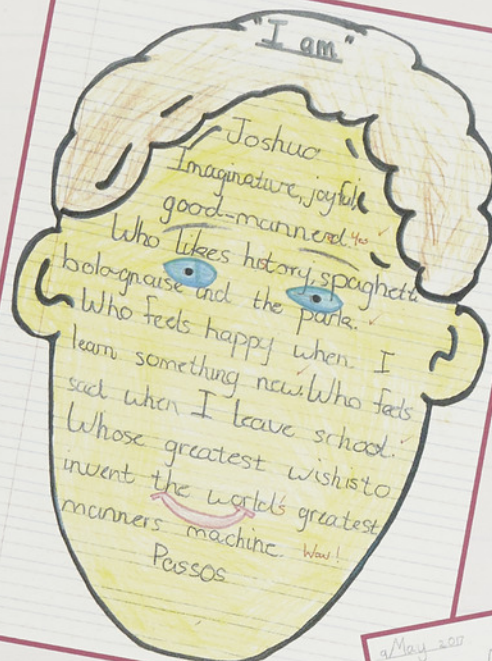 "I am"
Joshua
Imaginative, joyful,
good-mannered. Yes
Who likes history, spaghetti
bolagnaise and the park.
Who feels happy when I
learn something new. Who feels
sad when I leave school.
Whose greatest wish is to
invent the world's greatest
manners machine. Wow!
Passos
May 2017